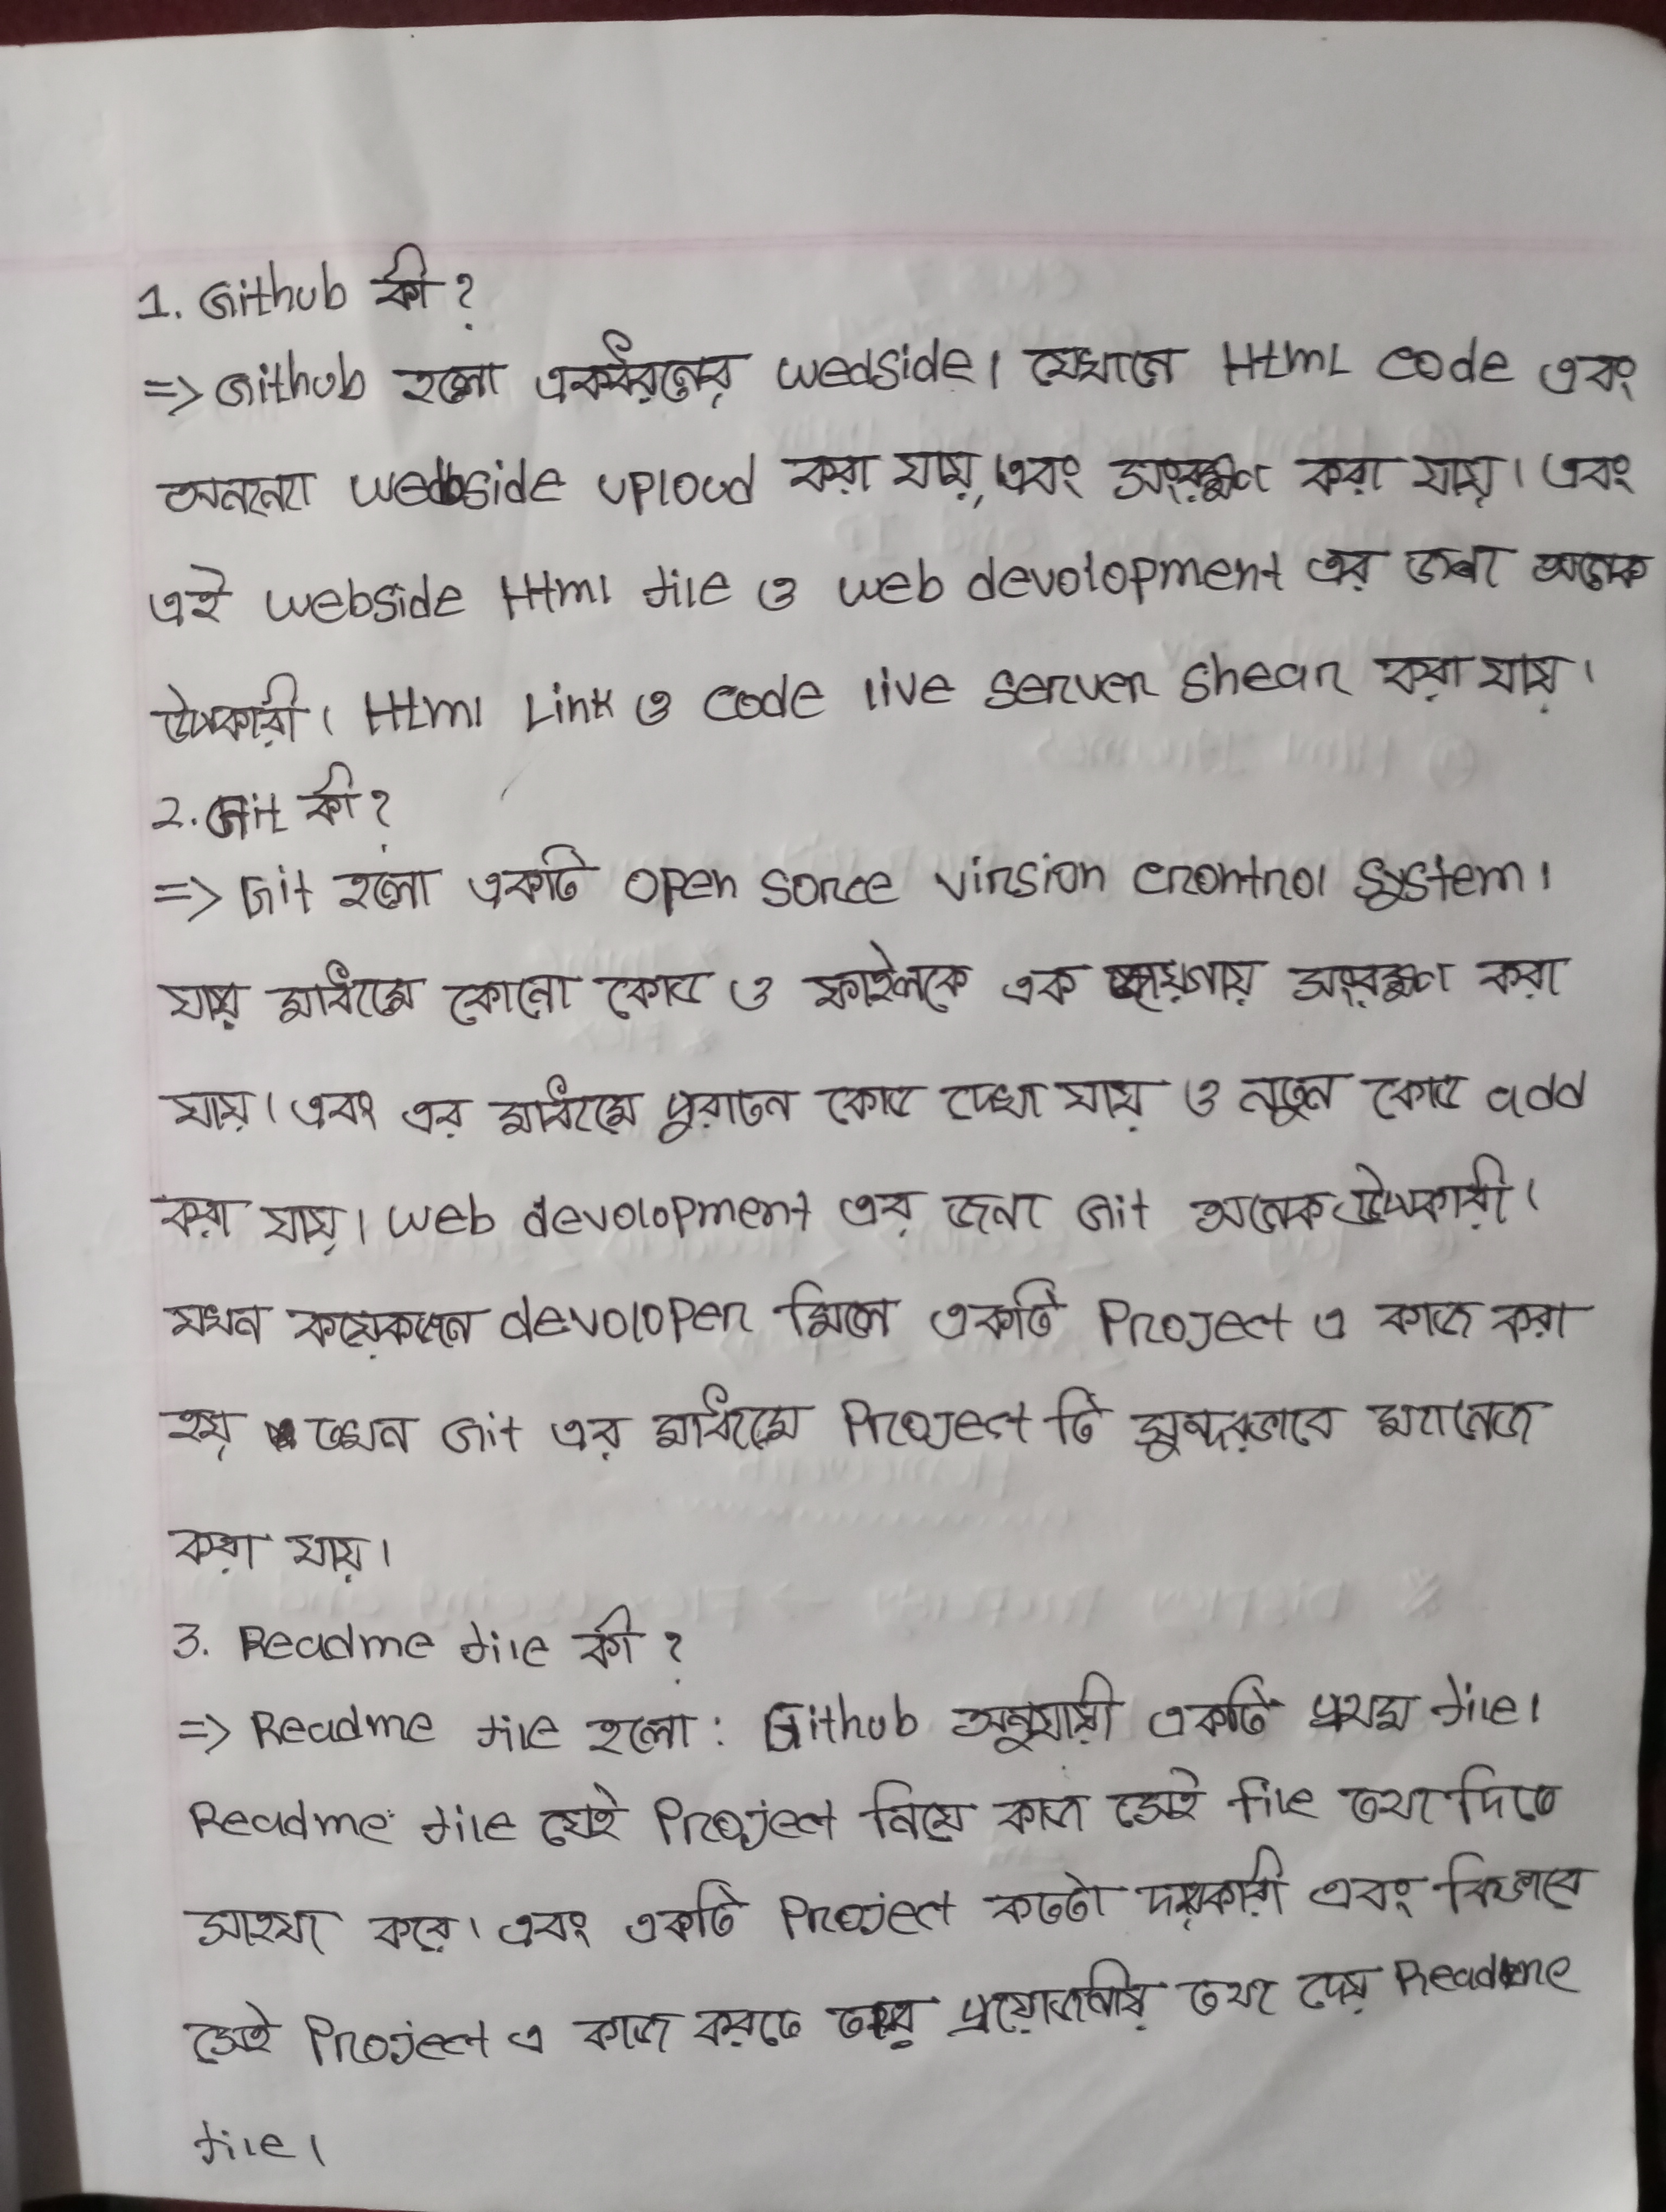 1. Github কী?
=> Github হলো একধরনের wedside। যেখানে Html code এবং
অনন্যে webside uploud করা যায়, এবং সংরক্ষণ করা যায়। এবং
এই webside Html file ও web devolopment এর জন্য অনেক
উপকারী। Html Link ও code live server shear করা যায়।
2. Git কী?
=> Git হলো একটি open sorce virsion crontrol system।
যায় মাধ্যমে কোনো কোড ও ফাইলকে এক জায়গায় সংরক্ষণ করা
যায়। এবং এর মাধ্যমে পুরাতন কোড দেখা যায় ও নতুন কোড add
করা যায়। web devolopment এর জন্য Git অনেক উপকারী।
যখন কয়েকজন devoloper মিলে একটি Project এ কাজ করা
হয় তখন Git এর মাধ্যমে Project টি সুন্দরভাবে ম্যানেজ
করা যায়।
3. Readme file কী?
=> Readme file হলো: Github অনুযায়ী একটি প্রথম file।
Readme file যেই Project নিয়ে কাজ সেই file তথ্য দিতে
সাহয্য করে। এবং একটি Project কতটা দরকারী এবং কিভাবে
সেই Project এ কাজ করতে তার প্রয়োজনীয় তথ্য দেয় Readme
file।